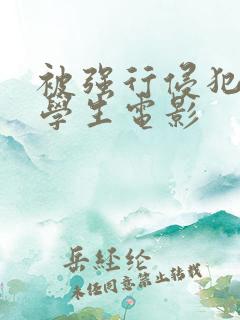 被强行侵犯
學生电影
岳经纶
未经同意禁止转载